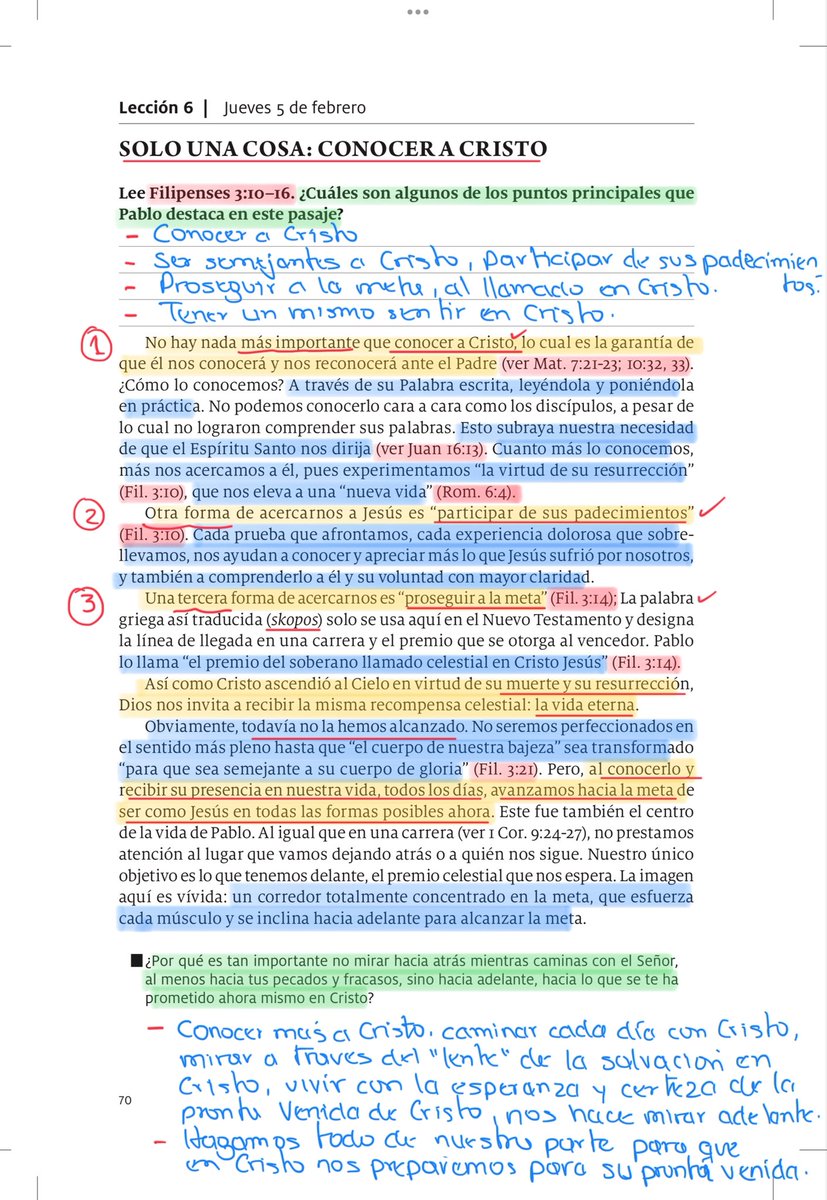 Lección 6 | Jueves 5 de febrero
SOLO UNA COSA: CONOCER A CRISTO
Lee Filipenses 3:10–16. ¿Cuáles son algunos de los puntos principales que
Pablo destaca en este pasaje?
- Conocer a Cristo
- Ser semejantes a Cristo, participar de sus padecimien
tos.
- Proseguir a la meta, al llamado en Cristo.
- Tener un mismo sentir en Cristo.
1
No hay nada más importante que conocer a Cristo, lo cual es la garantía de
que él nos conocerá y nos reconocerá ante el Padre (ver Mat. 7:21-23; 10:32, 33).
¿Cómo lo conocemos? A través de su Palabra escrita, leyéndola y poniéndola
en práctica. No podemos conocerlo cara a cara como los discípulos, a pesar de
lo cual no lograron comprender sus palabras. Esto subraya nuestra necesidad
de que el Espíritu Santo nos dirija (ver Juan 16:13). Cuanto más lo conocemos,
más nos acercamos a él, pues experimentamos “la virtud de su resurrección”
(Fil. 3:10), que nos eleva a una “nueva vida” (Rom. 6:4).
2
Otra forma de acercarnos a Jesús es “participar de sus padecimientos”
(Fil. 3:10). Cada prueba que afrontamos, cada experiencia dolorosa que sobre-
llevamos, nos ayudan a conocer y apreciar más lo que Jesús sufrió por nosotros,
y también a comprenderlo a él y su voluntad con mayor claridad.
3
Una tercera forma de acercarnos es “proseguir a la meta” (Fil. 3:14); La palabra
griega así traducida (skopos) solo se usa aquí en el Nuevo Testamento y designa
la línea de llegada en una carrera y el premio que se otorga al vencedor. Pablo
lo llama “el premio del soberano llamado celestial en Cristo Jesús” (Fil. 3:14).
Así como Cristo ascendió al Cielo en virtud de su muerte y su resurrección,
Dios nos invita a recibir la misma recompensa celestial: la vida eterna.
Obviamente, todavía no la hemos alcanzado. No seremos perfeccionados en
el sentido más pleno hasta que “el cuerpo de nuestra bajeza” sea transformado
“para que sea semejante a su cuerpo de gloria” (Fil. 3:21). Pero, al conocerlo y
recibir su presencia en nuestra vida, todos los días, avanzamos hacia la meta de
ser como Jesús en todas las formas posibles ahora. Este fue también el centro
de la vida de Pablo. Al igual que en una carrera (ver 1 Cor. 9:24-27), no prestamos
atención al lugar que vamos dejando atrás o a quién nos sigue. Nuestro único
objetivo es lo que tenemos delante, el premio celestial que nos espera. La imagen
aquí es vívida: un corredor totalmente concentrado en la meta, que esfuerza
cada músculo y se inclina hacia adelante para alcanzar la meta.
¿Por qué es tan importante no mirar hacia atrás mientras caminas con el Señor,
al menos hacia tus pecados y fracasos, sino hacia adelante, hacia lo que se te ha
prometido ahora mismo en Cristo?
- Conocer más a Cristo. caminar cada día con Cristo,
mirar a traves del "lente" de la salvación en
Cristo, vivir con la esperanza y certeza de la
pronta Venida de Cristo, nos hace mirar adelante.
- Hagamos todo de nuestra parte para que
en Cristo nos preparemos para su pronta venida.
70